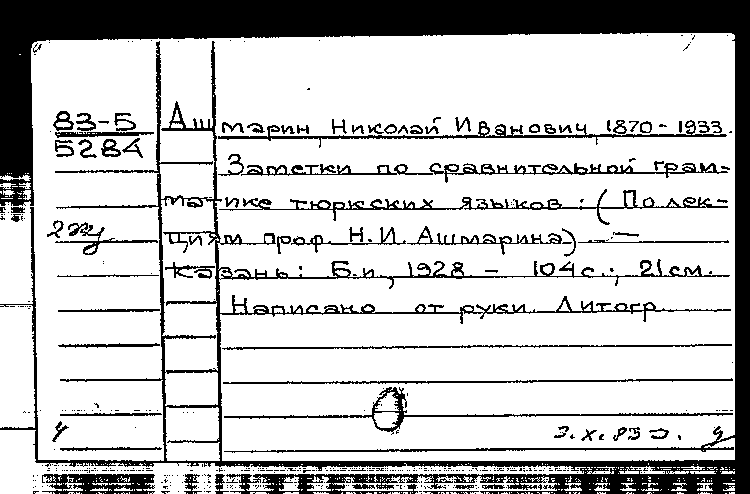 83-5
5284
Ашмарин, Николай Иванович, 1870-1933.
Заметки по сравнительной грам-
матике тюркских языков: (По лек-
циям проф. Н.И. Ашмарина) —
Казань: Б.и., 1928. - 104с.; 21см.
Написано от руки. Литогр.
3.X.83